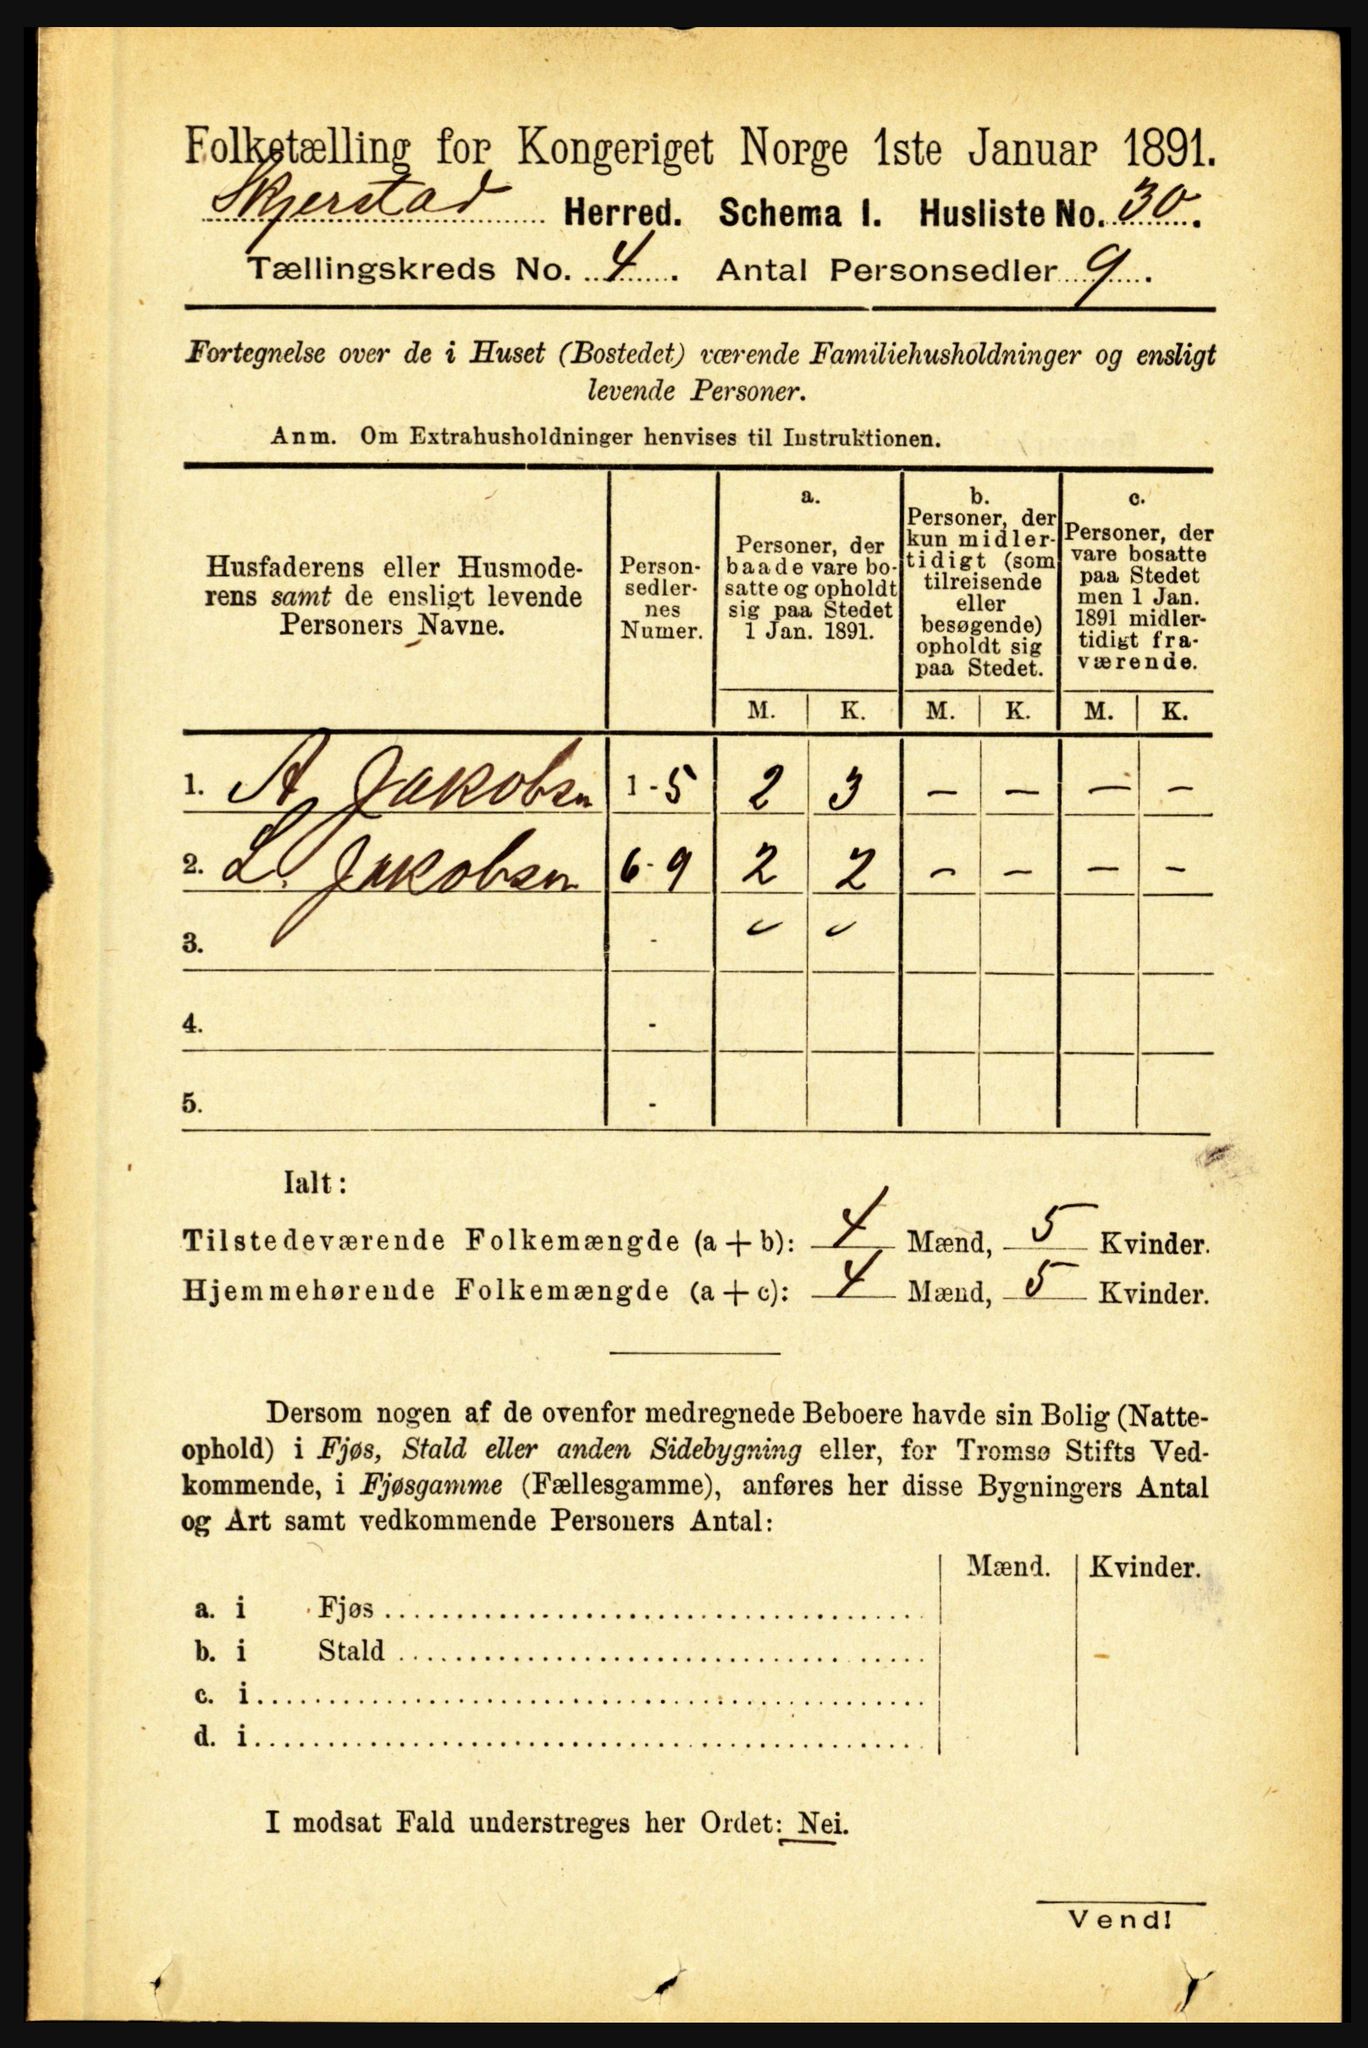 Folketælling for Kongeriget Norge 1ste Januar 1891.
Skjerstad Herred. Schema I. Husliste No. 30.
Tællingskreds No. 4. Antal Personsedler 9.
Fortegnelse over de i Huset (Bostedet) værende Familiehusholdninger og ensligt
levende Personer.
Anm. Om Extrahusholdninger henvises til Instruktionen.
Husfaderens eller Husmode-
rens samt de ensligt levende
Personers Navne.
Person-
sedler-
nes
Numer.
a.
Personer, der
baade vare bo-
satte og opholdt
sig paa Stedet
1 Jan. 1891.
b.
Personer, der
kun midler-
tidigt (som
tilreisende
eller
besøgende)
opholdt sig
paa Stedet.
c.
Personer, der
vare bosatte
paa Stedet
men 1 Jan.
1891 midler-
tidigt fra-
værende.
M. K. M. K. M. K.
1. A. Jakobsen 1-5 2 3 – – – –
2. L. Jakobsen 6-9 2 2 – – – –
3. -
4. -
5. -
Ialt:
Tilstedeværende Folkemængde (a + b): 4 Mænd, 5 Kvinder.
Hjemmehørende Folkemængde (a + c): 4 Mænd, 5 Kvinder.
Dersom nogen af de ovenfor medregnede Beboere havde sin Bolig (Natte-
ophold) i Fjøs, Stald eller anden Sidebygning eller, for Tromsø Stifts Ved-
kommende, i Fjøsgamme (Fællesgamme), anføres her disse Bygningers Antal
og Art samt vedkommende Personers Antal:
Mænd. Kvinder.
a. i Fjøs
b. i Stald
c. i
d. i
I modsat Fald understreges her Ordet: Nei.
Vend!